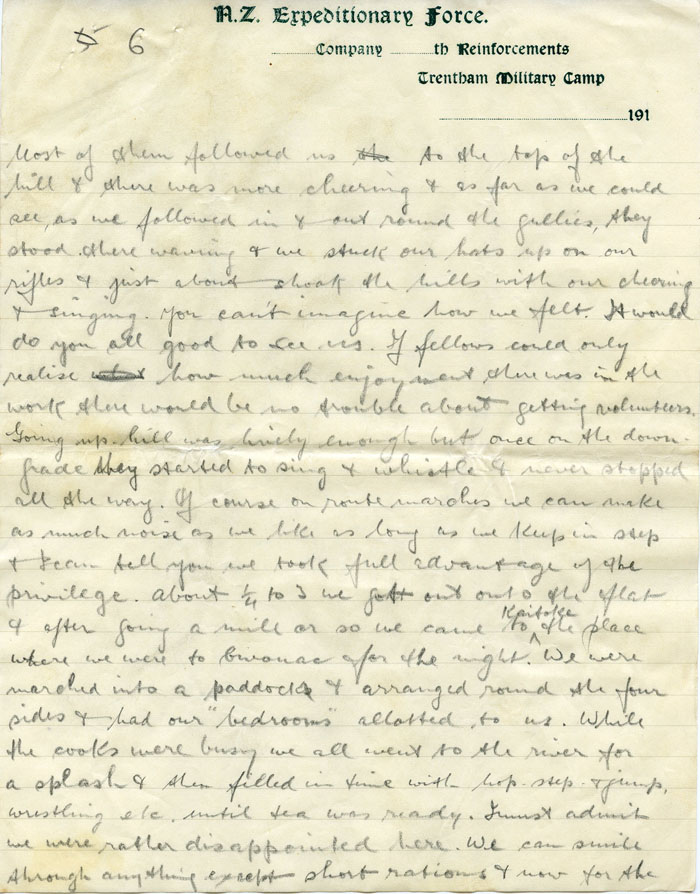 N.Z. Expeditionary Force.
5 6
Company th Reinforcements
Trentham Military Camp
191
Most of them followed us the to the top of the
hill & there was more cheering & as far as we could
see, as we followed in & out round the gullies, they
stood there waving & we stuck our hats up on our
rifles & just about shook the hills with our cheering
& singing. You can't imagine how we felt. It would
do you all good to see us. If fellows could only
realise what how much enjoyment there was in the
work there would be no trouble about getting volunteers.
Going up-hill was lively enough but once on the down-
grade they started to sing & whistle & never stopped
all the way. Of course on route marches we can make
as much noise as we like as long as we keep in step
& I can tell you we took full advantage of the
privilege. About ¼ to 3 we gott out onto the flat
Kaitoke
& after going a mile or so we came to ^ the place
where we were to bivouac for the night. We were
marched into a paddock & arranged round the four
sides & had our "bedrooms" allotted to us. While
the cooks were busy we all went to the river for
a splash & then filled in time with hop-step-&-jump,
wrestling etc. until tea was ready. I must admit
we were rather disappointed here. We can smile
through anything except short rations & now for the